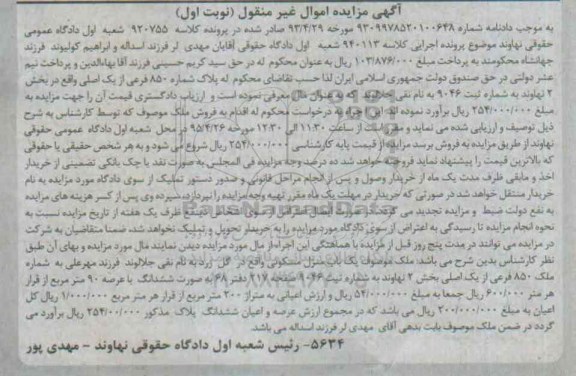 آگهی مزایده اموال غیر منقول (نوبت اول)
به موجب دادنامه شماره ۹۳۰۹۹۷۸۵۲۰۱۰۰۶۴۸ مورخه ۹۳/۴/۲۹ صادر شده در پرونده کلاسه ۹۲۰۷۵۵ شعبه اول دادگاه عمومی
حقوقی نهاوند موضوع پرونده اجرایی کلاسه ۹۴۰۱۱۳ شعبه اول دادگاه حقوقی آقایان مهدی لر فرزند اسداله و ابراهیم کولیوند فرزند
جهانشاه محکومند به پرداخت مبلغ ۱۰۳/۸۷۶/۰۰۰ ریال به عنوان محکوم له در حق سید کریم حسینی فرزند آقا بهاءالدین و پرداخت نیم
عشر دولتی در حق صندوق دولت جمهوری اسلامی ایران لذا حسب تقاضای محکوم له پلاک شماره ۸۵۰ فرعی از یک اصلی واقع در بخش
۲ نهاوند به شماره ثبت ۹۰۴۶ به نام نقی جلالوند که به عنوان مال معرفی نموده است و ارزیاب دادگستری قیمت آن را جهت مزایده به
مبلغ ۲۵۴/۰۰۰/۰۰۰ ریال برآورد نموده اند این اجراء به درخواست محکوم له اقدام به فروش ملک موصوف که توسط کارشناس به شرح
ذیل توصیف و ارزیابی شده می نماید و مقرر است از ساعت ۱۱:۳۰ الی ۱۲:۳۰ مورخه ۹۵/۴/۲۶ در محل شعبه اول دادگاه عمومی حقوقی
نهاوند از طریق مزایده به فروش برسد مزایده از قیمت پایه کارشناسی ۲۵۴/۰۰۰/۰۰۰ ریال شروع می شود و به هر شخص حقیقی یا حقوقی
که بالاترین قیمت را پیشنهاد نماید فروخته خواهد شد ده درصد وجه مزایده فی المجلس به صورت نقد یا چک بانکی تضمینی از خریدار
اخذ و مابقی ظرف مدت یک ماه از خریدار وصول و پس از انجام مراحل قانونی و صدور دستور تملیک از سوی دادگاه مورد مزایده به نام
خریدار منتقل خواهد شد در صورتی که خریدار در مهلت یک ماه مقرر بقیه وجه مزایده را نپردازد سپرده وی پس از کسر هزینه های مزایده
به نفع دولت ضبط و مزایده تجدید می گردد ظرف یک هفته از تاریخ مزایده نسبت به
نحوه انجام مزایده تا رسیدگی به اعتراض از سوی دادگاه مورد مزایده را به خریدار تحویل و تملیک نخواهد شد، ضمنا متقاضیان به شرکت
در مزایده می توانند در مدت پنج روز قبل از مزایده با هماهنگی این اجراء از مال مورد مزایده دیدن نمایند مال مورد مزایده و بهای آن طبق
نظر کارشناس بدین شرح می باشد ملک موصوف یک باب منزل مسکونی واقع در گل زرد به نام نقی جلالوند فرزند مهرعلی به شماره
ملک ۸۵۰ فرعی از یک اصلی بخش ۲ نهاوند به شماره ثبت ۹۰۴۶ صفحه ۲۱۷ دفتر ۶۸ به صورت ششدانگ با عرصه ۹۰ متر مربع از قرار
هر متر ۶۰۰/۰۰۰ ریال جمعا به مبلغ ۵۴/۰۰۰/۰۰۰ ریال و ارزش اعیانی به متراژ ۲۰۰ متر مربع از قرار هر متر مربع ۱/۰۰۰/۰۰۰ ریال کل
اعیان به مبلغ ۲۰۰/۰۰۰/۰۰۰ ریال می باشد که در مجموع ارزش عرصه و اعیان ششدانگ پلاک مذکور ۲۵۴/۰۰/۰۰۰ ریال برآورد می
گردد در ضمن ملک موصوف بابت بدهی آقای مهدی لر فرزند اسداله می باشد.
۵۶۳۴- رئیس شعبه اول دادگاه حقوقی نهاوند - مهدی پور